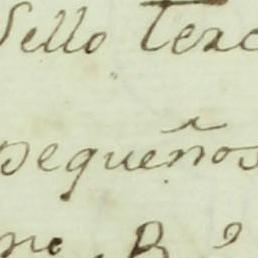 Sello Terc
pequeños